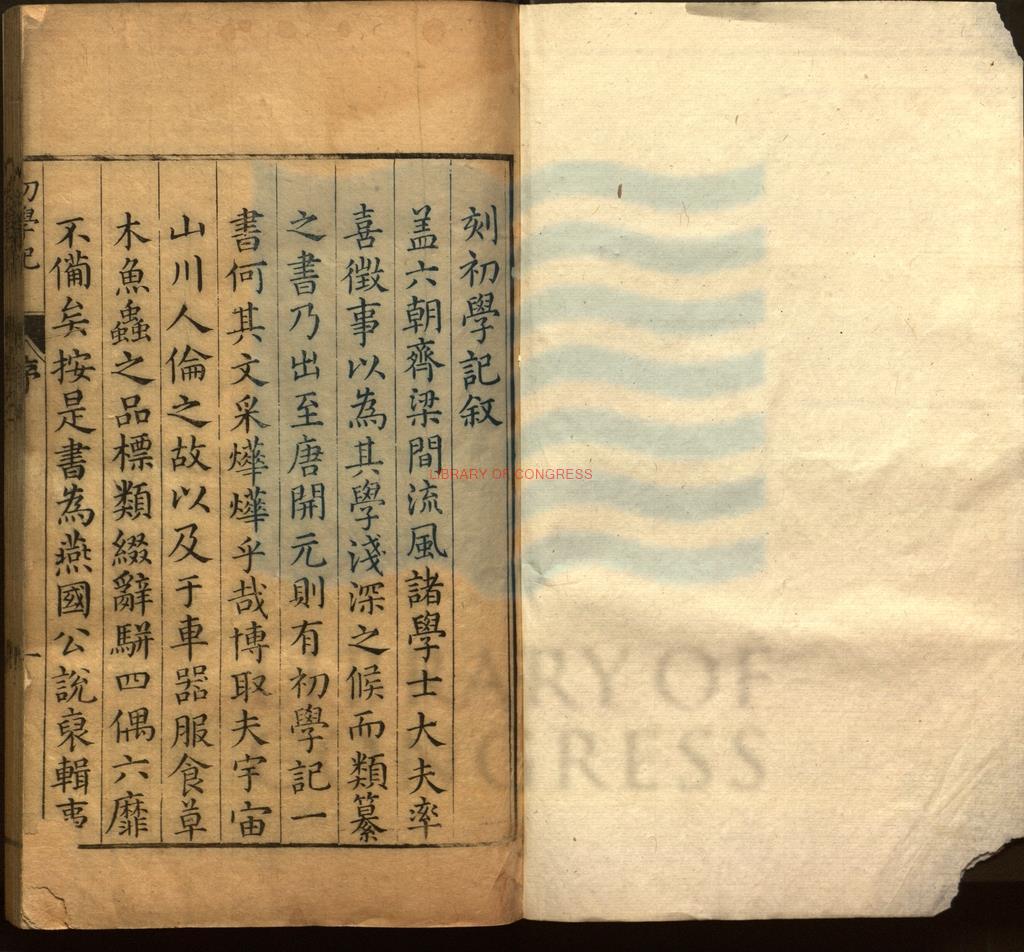 刻初學記叙
盖六朝齊梁間流風諸學士大夫率
喜徵事以為其學淺深之候而類纂
之書乃出至唐開元則有初學記一
書何其文采燁燁乎哉博取夫宇宙
山川人倫之故以及于車器服食草
木魚蟲之品標類綴辭駢四偶六靡
不備矣按是書為燕國公說裒輯事
初學記
序
一
LIBRARY OF CONGRESS
ARY OF
GRESS